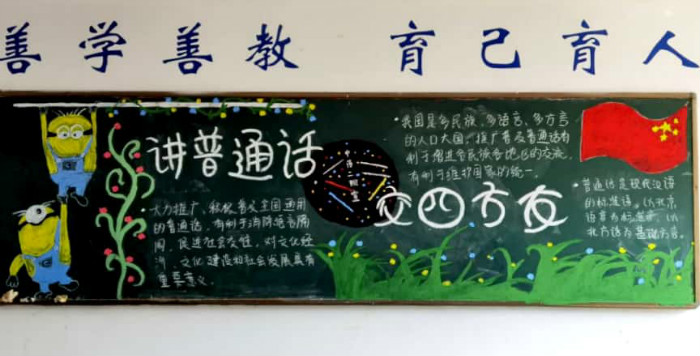 善学善教 育己育人
讲普通话
交四方友
·大力推广、积极普及全国通用
的普通话，有利于消除语言隔
阂，促进社会交往，对文化经
济、文化建设和社会发展具有
重要意义。
·我国是多民族、多语言、多方言
的人口大国，推广普及普通话有
利于增进各民族各地区的交流，
有利于维护国家的统一。
·普通话是现代汉语
的标准语。以北京
语音为标准音，以
北方话为基础方言。